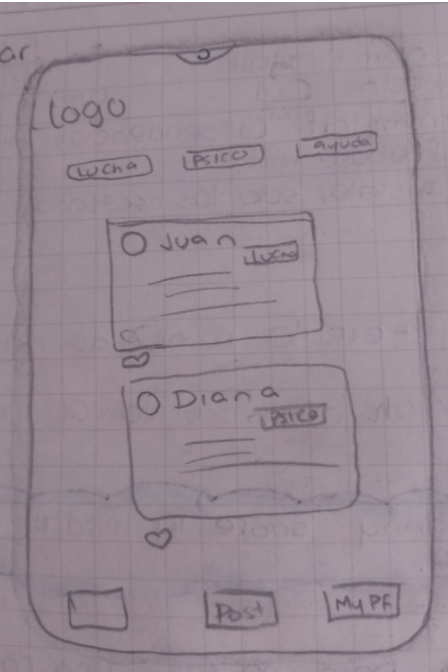 ar
logo
Lucha Psico ayuda
Juan
Lucha
Diana
Psico
Post My PF